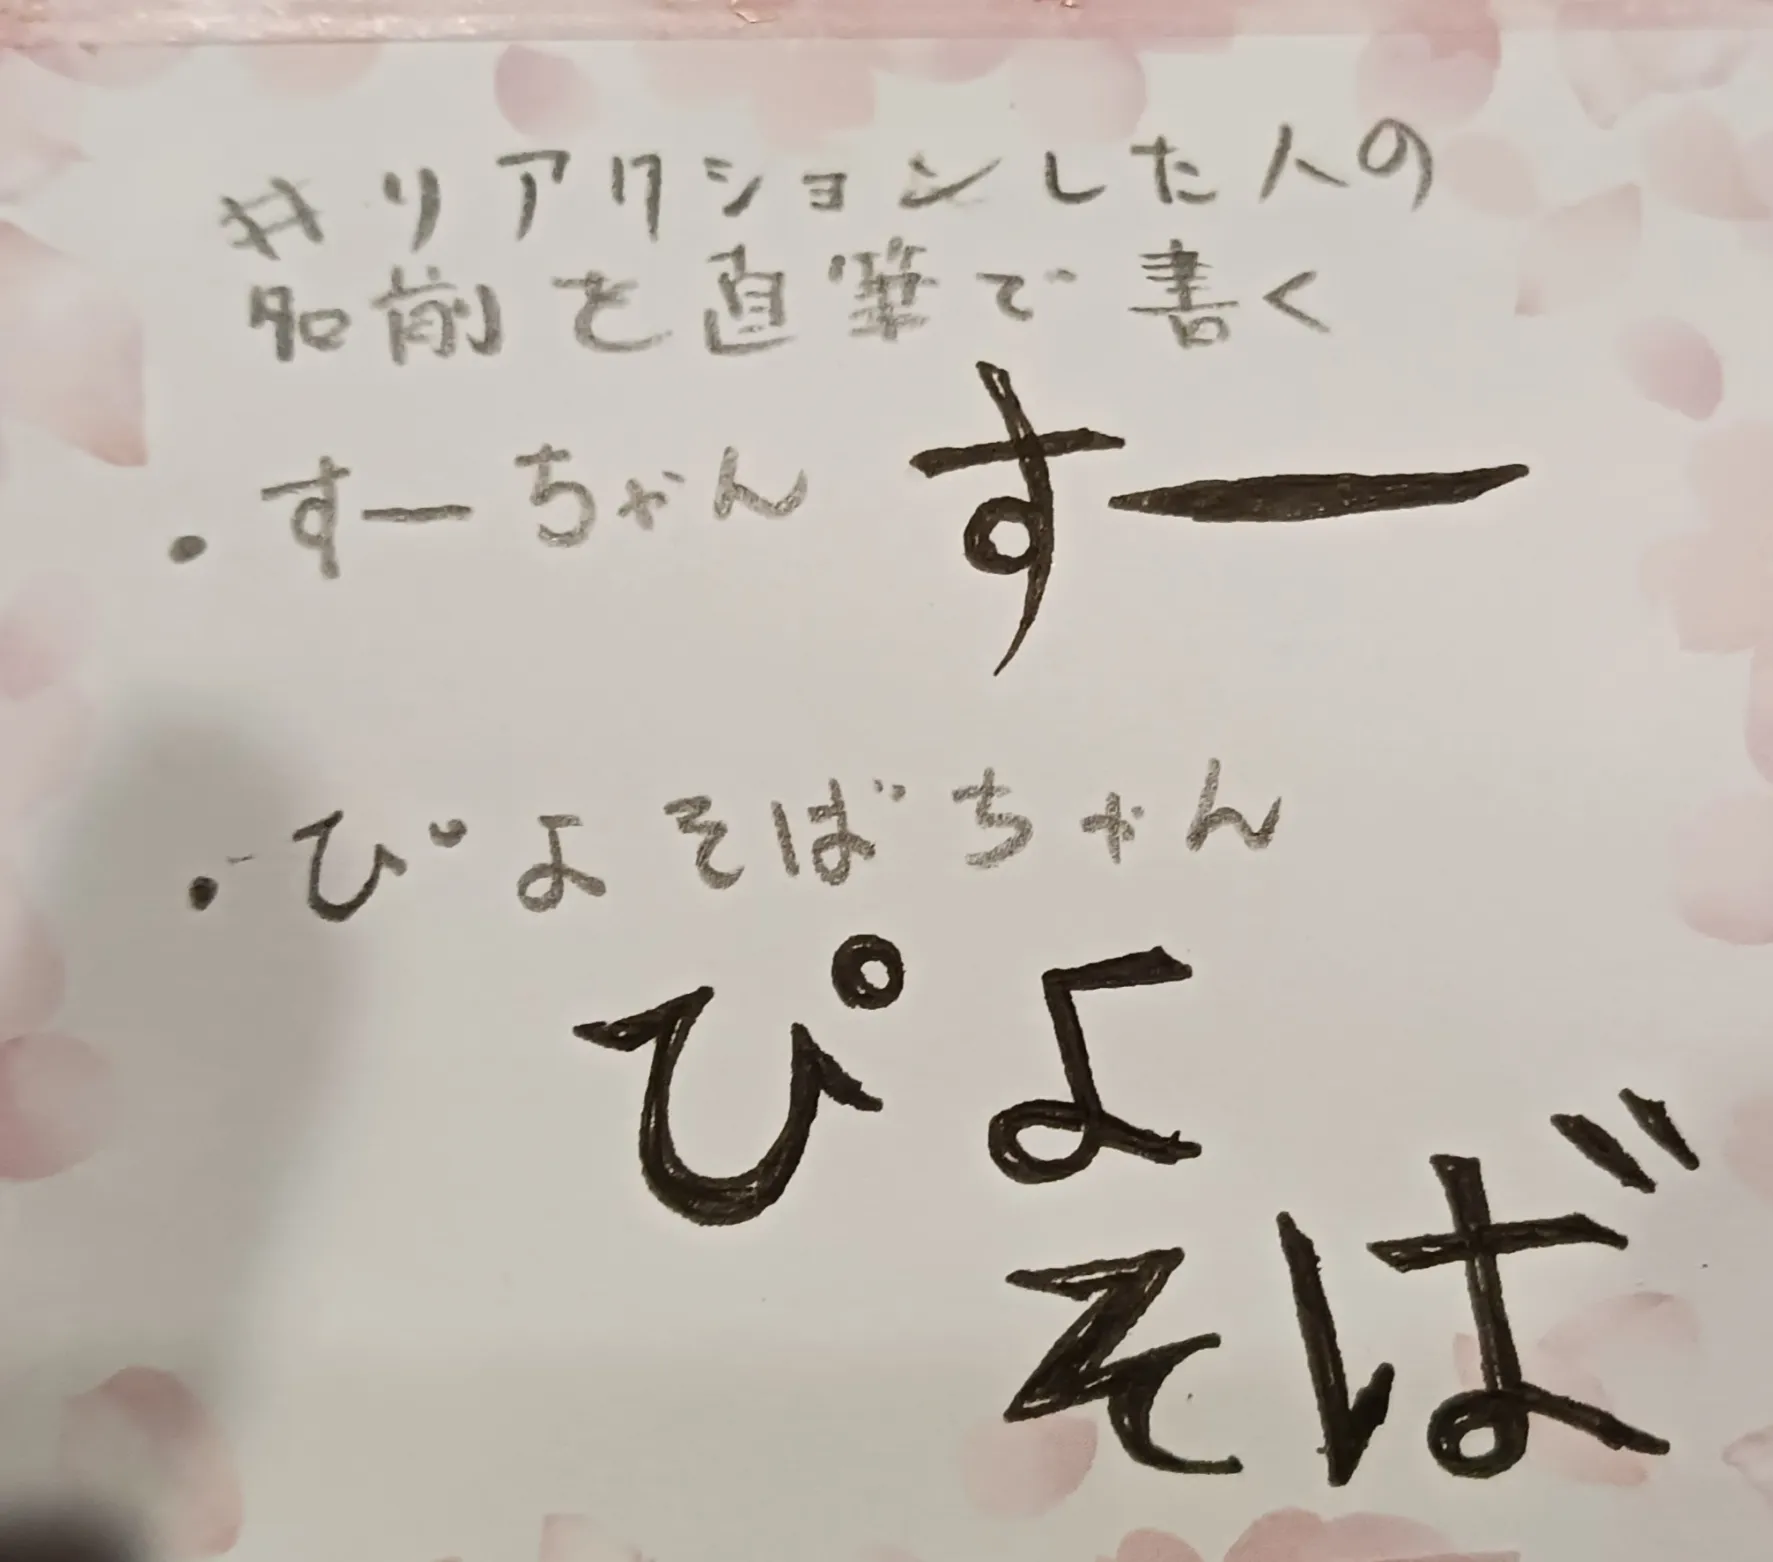 #リアクションした人の
名前を直筆で書く
・すーちゃん すー
・ぴよそばちゃん
ぴよ
そば